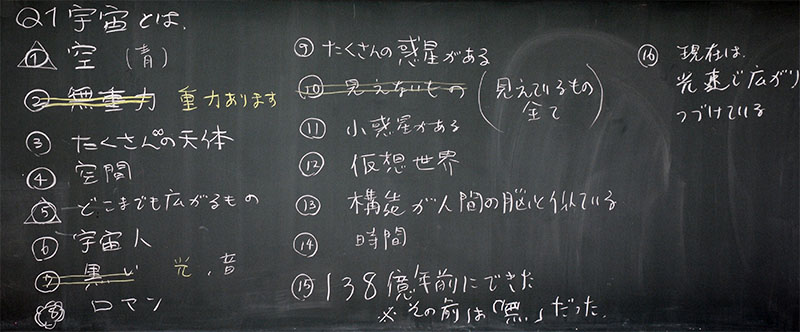 Q1 宇宙とは、
① 空 (青)
② 無重力 重力あります
③ たくさん∞の天体
④ 空間
⑤ どこまでも広がるもの
⑥ 宇宙人
⑦ 黒い 光、音
⑧ ロマン
⑨ たくさんの惑星がある
⑩ 見えないもの (見えているもの
全て)
⑪ 小惑星がある
⑫ 仮想世界
⑬ 構造が人間の脳と似ている
⑭ 時間
⑮ 138億年前にできた
※ その前は「無」だった
⑯ 現在は、
光速で広がり
つづけている